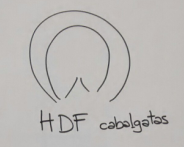 HDF cabalgatas